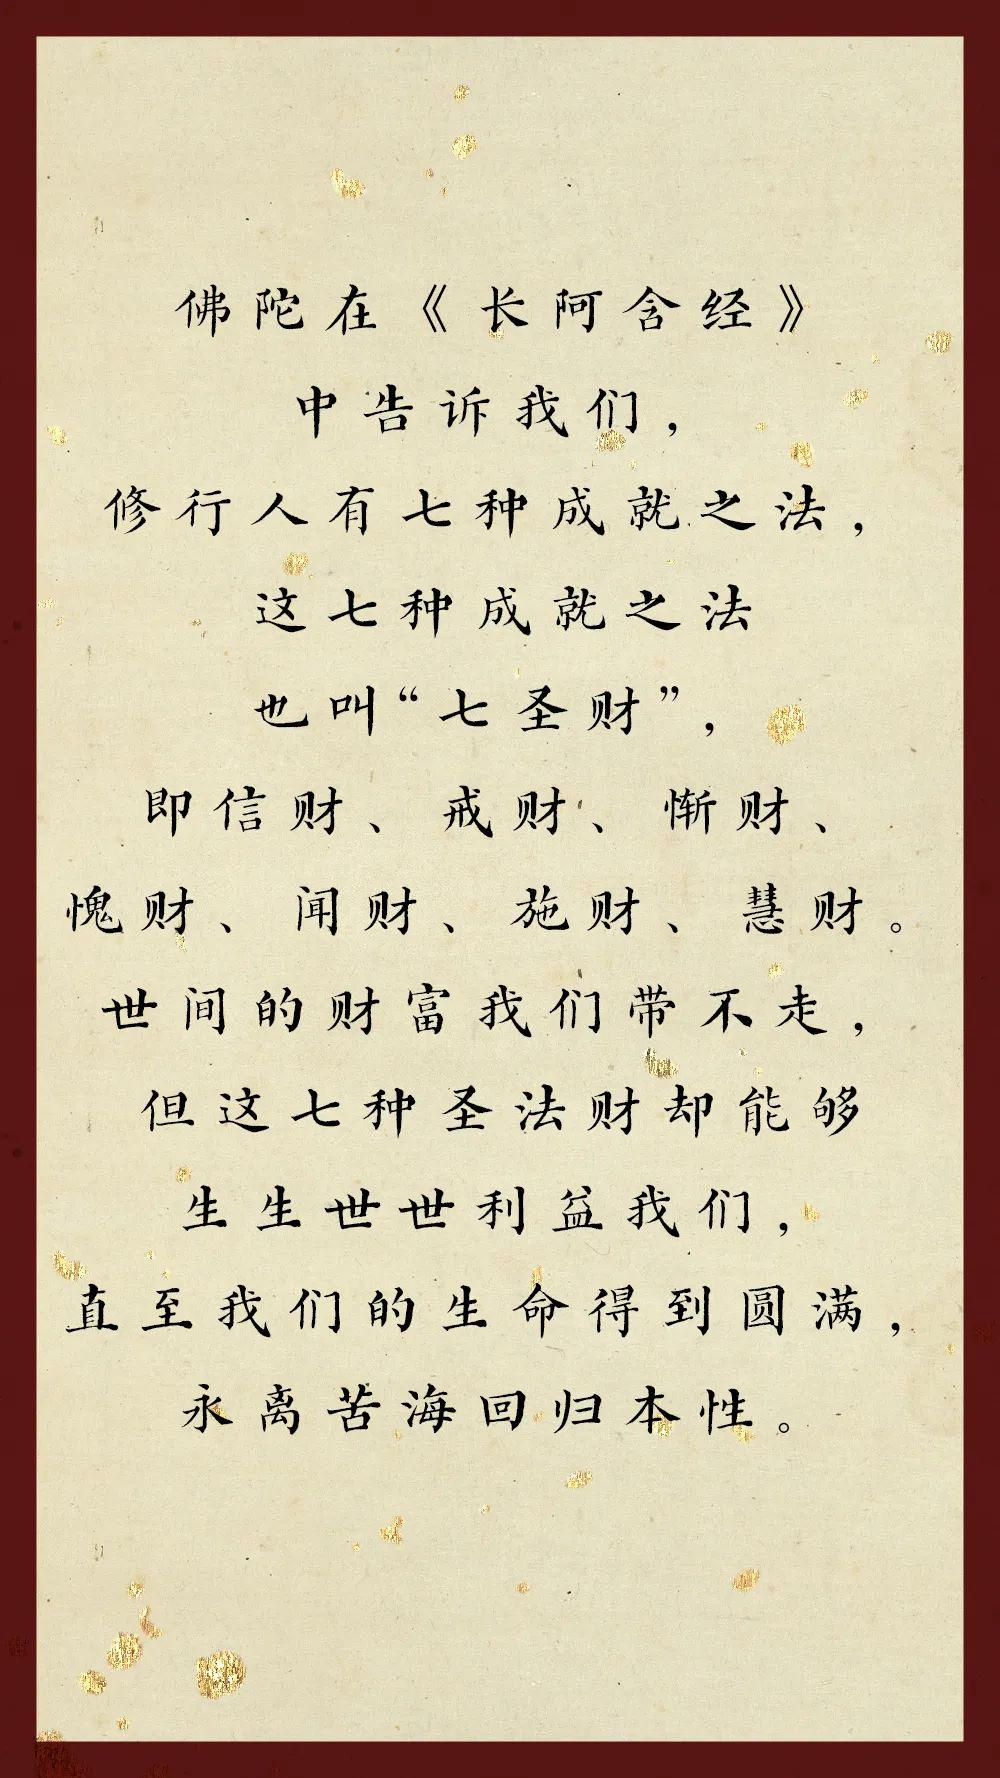 佛陀在《长阿含经》
中告诉我们，
修行人有七种成就之法，
这七种成就之法
也叫“七圣财”，
即信财、戒财、惭财、
愧财、闻财、施财、慧财。
世间的财富我们带不走，
但这七种圣法财却能够
生生世世利益我们，
直至我们的生命得到圆满，
永离苦海回归本性。